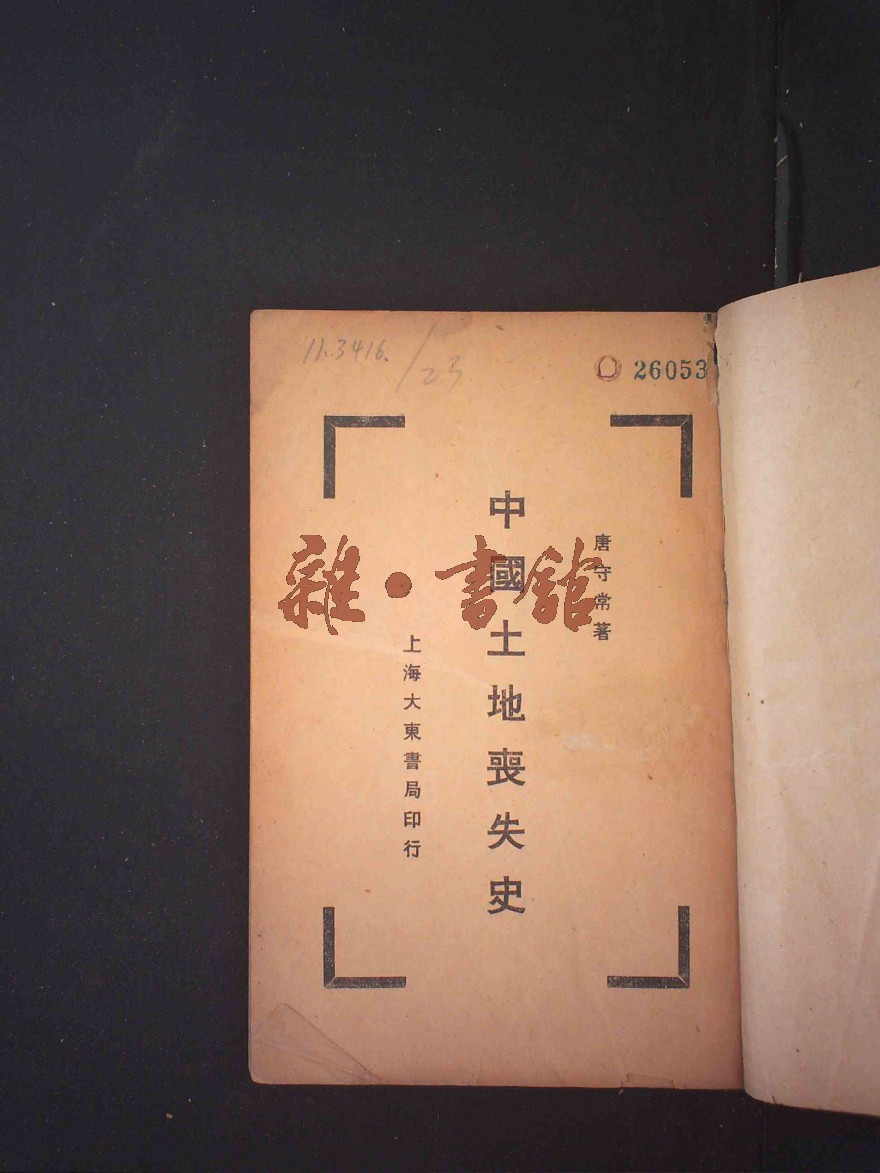 11.3416.
23
26053
唐守常著
中國土地喪失史
上海大東書局印行
雜·書館